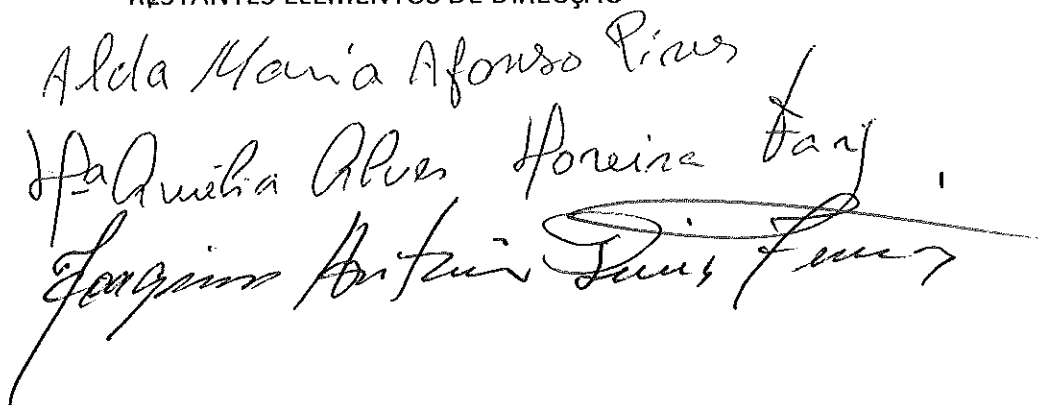 RESTANTES ELEMENTOS DE DIRECÇÃO
Alda Maria Afonso Pires
Mª Amélia Alves Moreira
Joaquim António Dinis